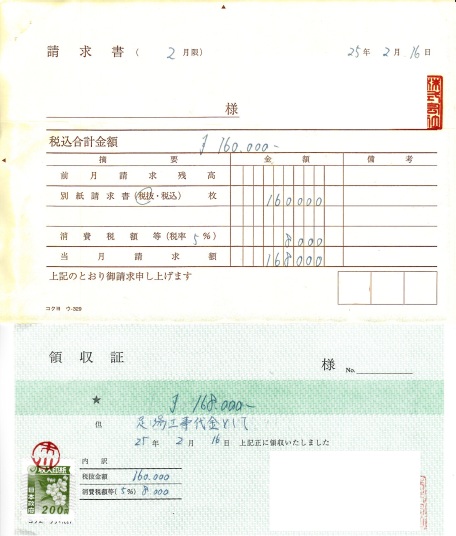 請求書（ 2 月限） 25年 2月 16日
様
税込合計金額 ¥160.000-
摘要 金額 備考
前月請求残高
別紙請求書（税抜・税込） 枚 160000
消費税額等（税率 5%） 8000
当月請求額 168000
上記のとおり御請求申し上げます
コクヨ ウ-329
領収証 様 No.
★ ¥168.000-
但 足場工事代金として
25年 2月 16日 上記正に領収いたしました
内訳
税抜金額 160.000
消費税額等(5%) 8.000
収入印紙
日本政府
200円